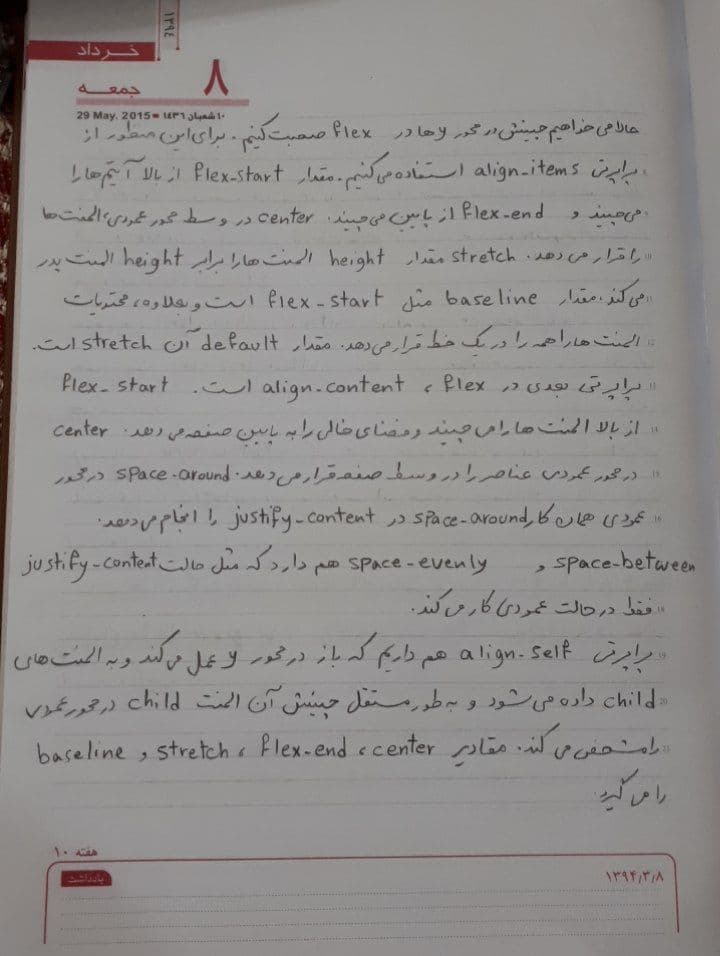 ۱۳۹٤
خرداد
۸
جمعه
29 May. 2015 ■ ۱۰ شعبان ۱٤۳٦
حالا می خواهیم چینش در محور y ها در flex صحبت کنیم. برای این منظور از
پراپرتی align-items استفاده می کنیم. مقدار flex-start از بالا آیتم ها را
می چیند و flex-end از پایین می چیند. center در وسط محور عمودی، المنت ها
را قرار می دهد. stretch مقدار height المنت ها را برابر height المنت پدر
می کند. مقدار baseline مثل flex-start است و بعلاوه، محتویات
المنت ها را همه را در یک خط قرار می دهد. مقدار default آن stretch است.
پراپرتی بعدی در flex، align-content است. flex-start
از بالا المنت ها را می چیند و فضای خالی را به پایین صفحه می دهد. center
در محور عمودی عناصر را در وسط صفحه قرار می دهد. space-around در محور
عمودی همان کار space-around در justify-content را انجام می دهد.
space-between و space-evenly هم دارد که مثل حالت justify-content
فقط در حالت عمودی کار می کند.
پراپرتی align-self هم داریم که باز در محور y عمل می کند و به المنت های
child داده می شود و به طور مستقل چینش آن المنت child در محور عمودی
را مشخص می کند. مقادیر center، flex-end، stretch و baseline
را می گیرد.
هفته ۱۰
یادداشت
۱۳۹۴/۳/۸